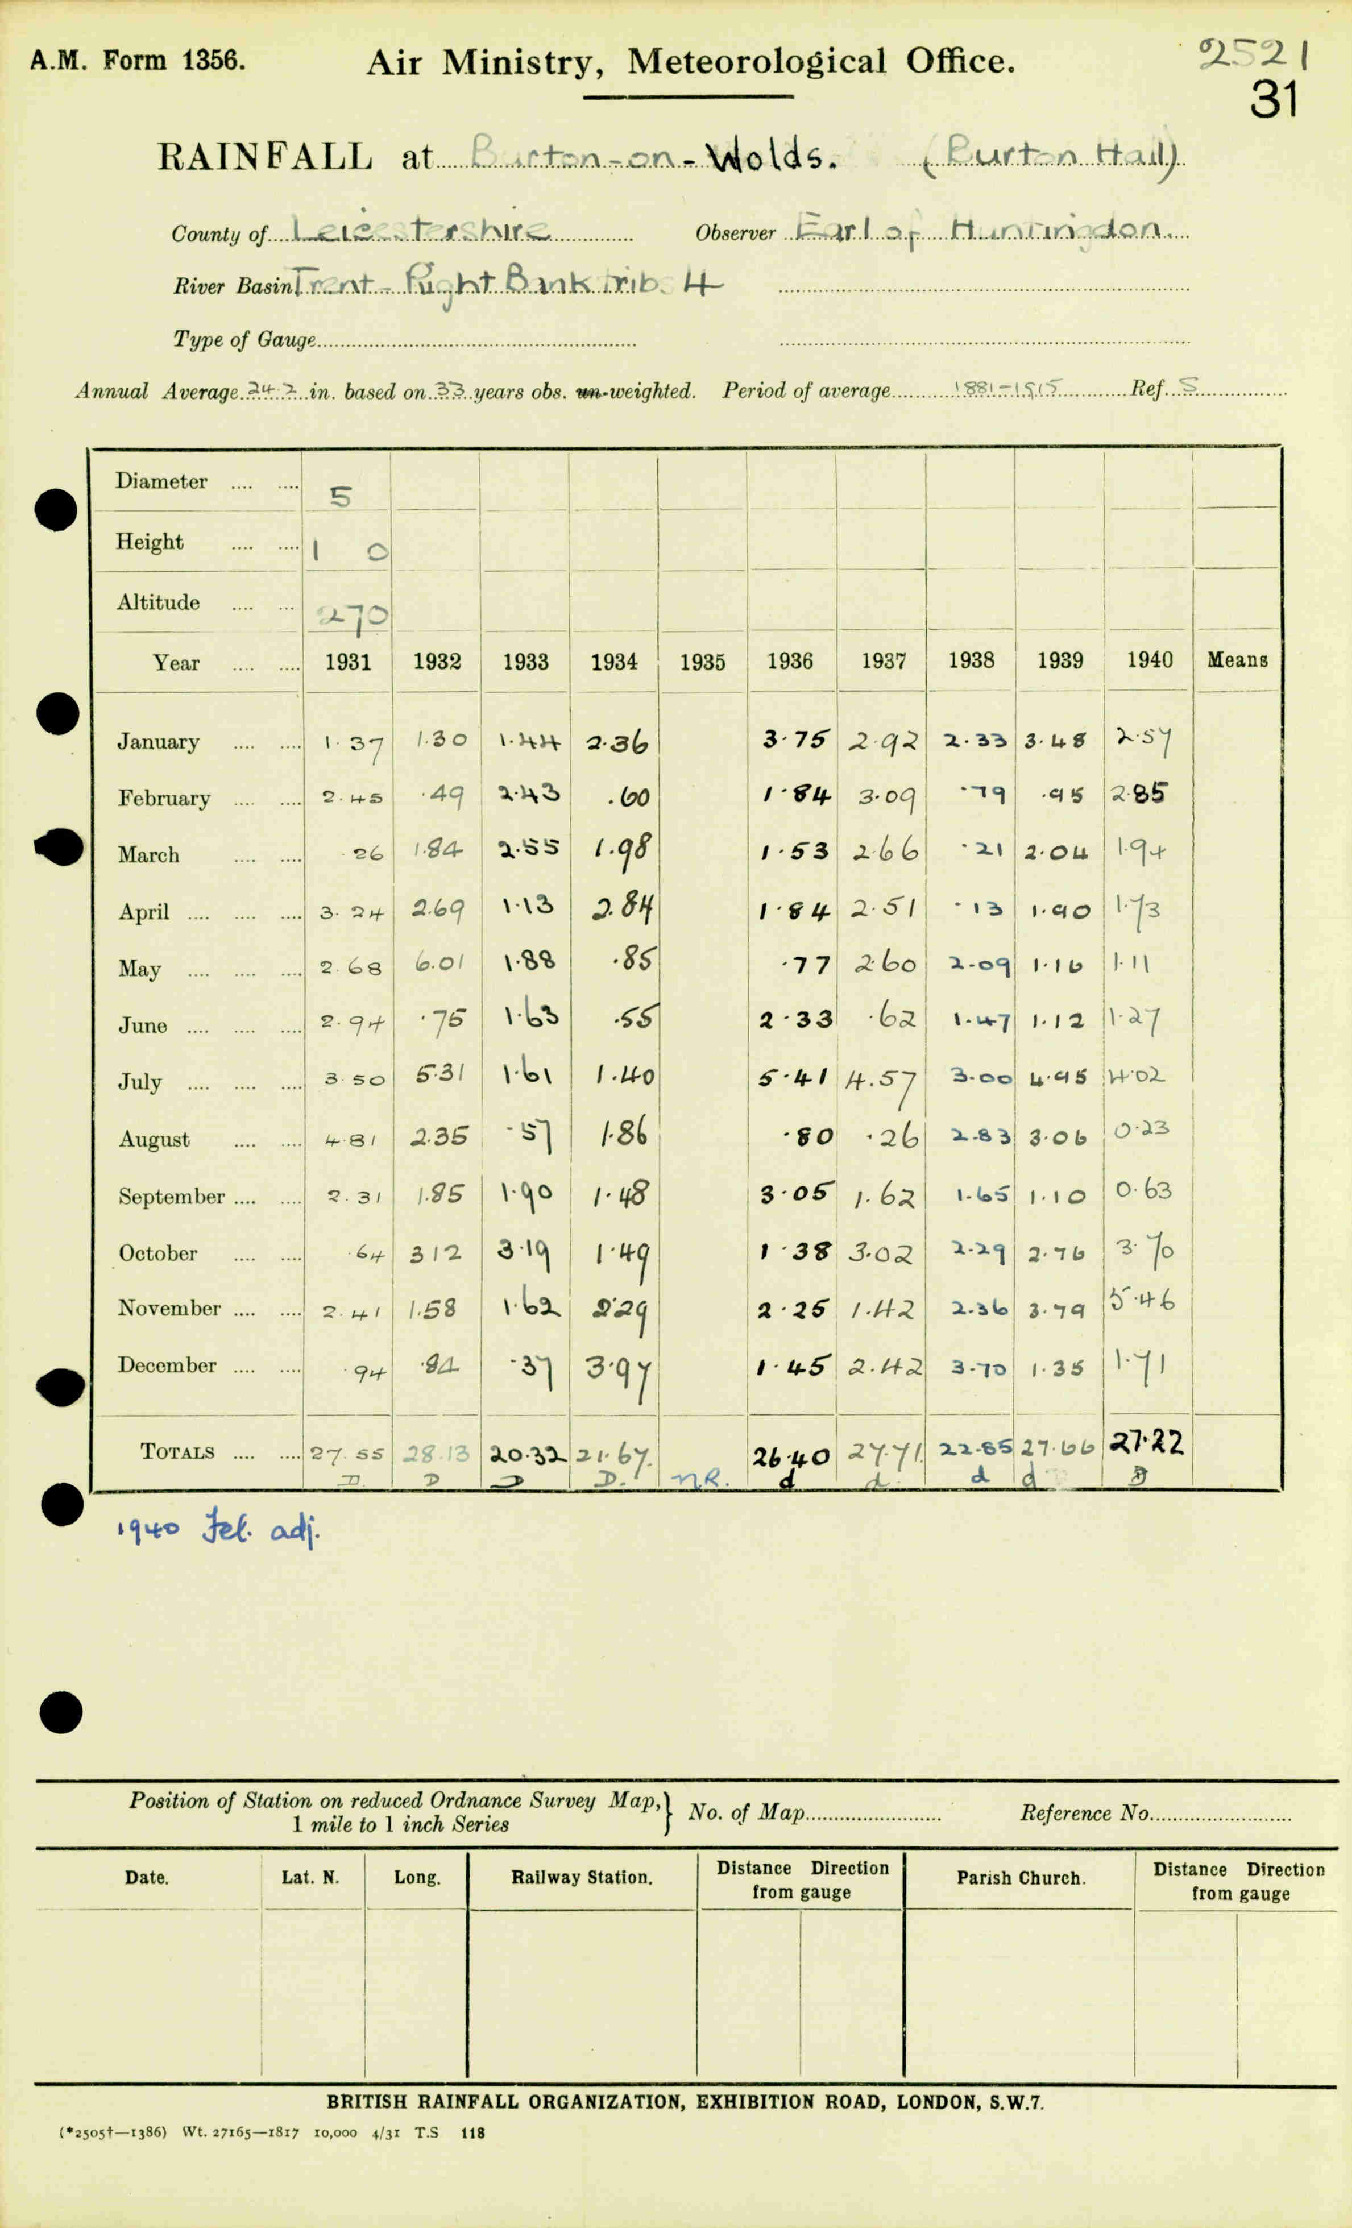 A.M. Form 1356. Air Ministry, Meteorological Office. 2521
31
RAINFALL at Burton-on-Wolds. (Burton Hall)
County of Leicestershire Observer Earl of Huntingdon.
River Basin Trent - Right Bank tribs 4
Type of Gauge
Annual Average 24.2 in. based on 33 years obs. un-weighted. Period of average 1881-1915 Ref. S
Diameter 5
Height 1 0
Altitude 270
Year 1931 1932 1933 1934 1935 1936 1937 1938 1939 1940 Means
January 1.37 1.30 1.44 2.36 3.75 2.92 2.33 3.48 2.57
February 2.45 .49 2.43 .60 1.84 3.09 .79 .95 2.85
March .26 1.84 2.55 1.98 1.53 2.66 .21 2.04 1.94
April 3.24 2.69 1.13 2.84 1.84 2.51 .13 1.90 1.73
May 2.68 6.01 1.88 .85 .77 2.60 2.09 1.16 1.11
June 2.94 .75 1.63 .55 2.33 .62 1.47 1.12 1.27
July 3.50 5.31 1.61 1.40 5.41 4.57 3.00 4.95 4.02
August 4.81 2.35 .57 1.86 .80 .26 2.83 3.06 0.23
September 2.31 1.85 1.90 1.48 3.05 1.62 1.65 1.10 0.63
October .64 3 12 3.19 1.49 1.38 3.02 2.29 2.76 3.70
November 2.41 1.58 1.62 2.29 2.25 1.42 2.36 3.79 5.46
December .94 .84 .37 3.97 1.45 2.42 3.70 1.35 1.71
TOTALS 27.55 28.13 20.32 21.67. 26.40 27.71. 22.85 27.66 27.22
D. D D D. N.R. d d. d d D
1940 Feb. adj.
Position of Station on reduced Ordnance Survey Map,} No. of Map Reference No.
1 mile to 1 inch Series
Date. Lat. N. Long. Railway Station. Distance Direction from gauge Parish Church. Distance Direction from gauge
BRITISH RAINFALL ORGANIZATION, EXHIBITION ROAD, LONDON, S.W.7.
(*2505†—1386) Wt. 27165—1817 10,000 4/31 T.S 118